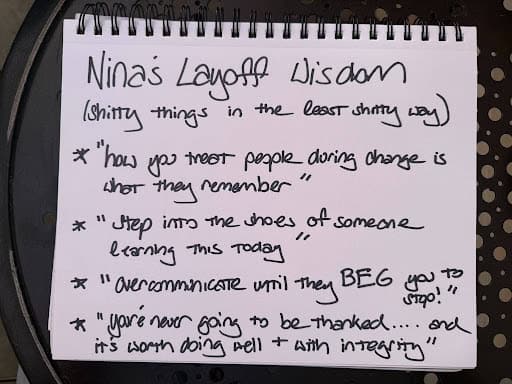 Nina's Layoff Wisdom
(shitty things in the least shitty way)
* "how you treat people during change is
what they remember"
* "step into the shoes of someone
learning this today"
* "overcommunicate until they BEG you to
stop!"
* "you're never going to be thanked.... and
it's worth doing well + with integrity"